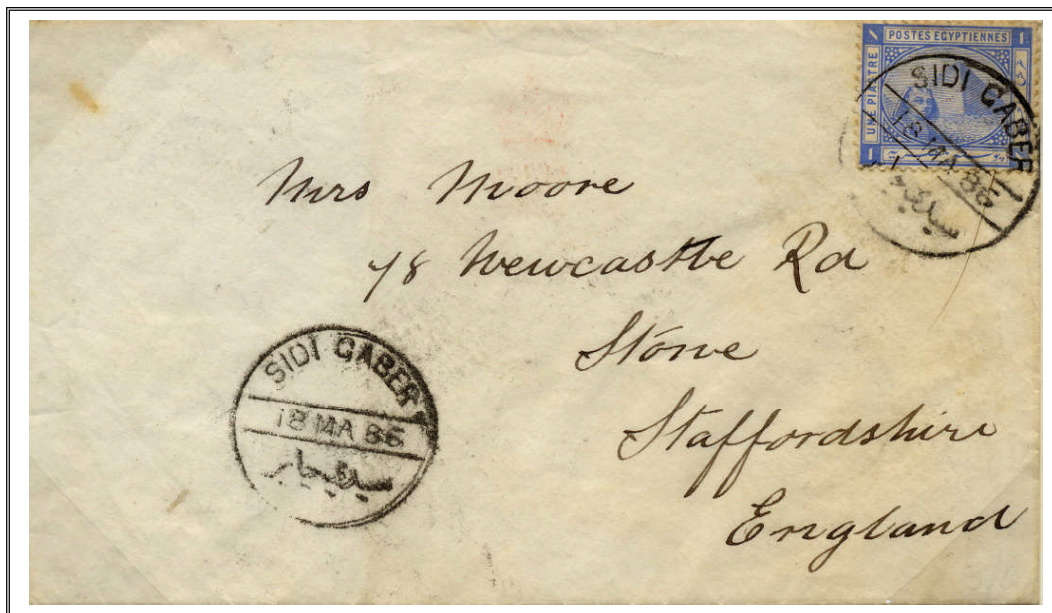 POSTES EGYPTIENNES
UNE PIASTRE
SIDI GABER
18 MA 86
Mrs Moore
78 Newcastle Rd
Stone
Staffordshire
England
SIDI GABER
18 MA 86
سيدي جابر